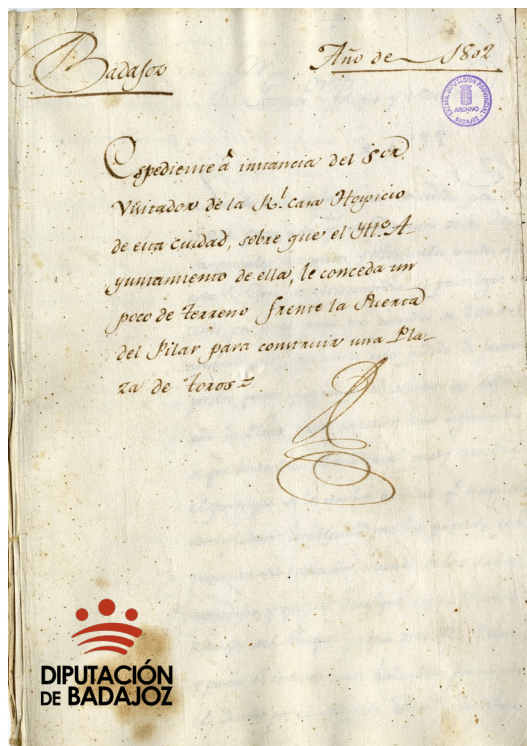 3
Badajoz
Año de 1802
ARCHIVO
Espediente á instancia del Sor.
Visitador de la Rl. Casa Hospicio
de esta Ciudad, sobre que el Yltro. A
yuntamiento de ella, le conceda un
poco de terreno frente la Puerta
del Pilar para construir una Pla-
za de toros=
DIPUTACIÓN
DE BADAJOZ